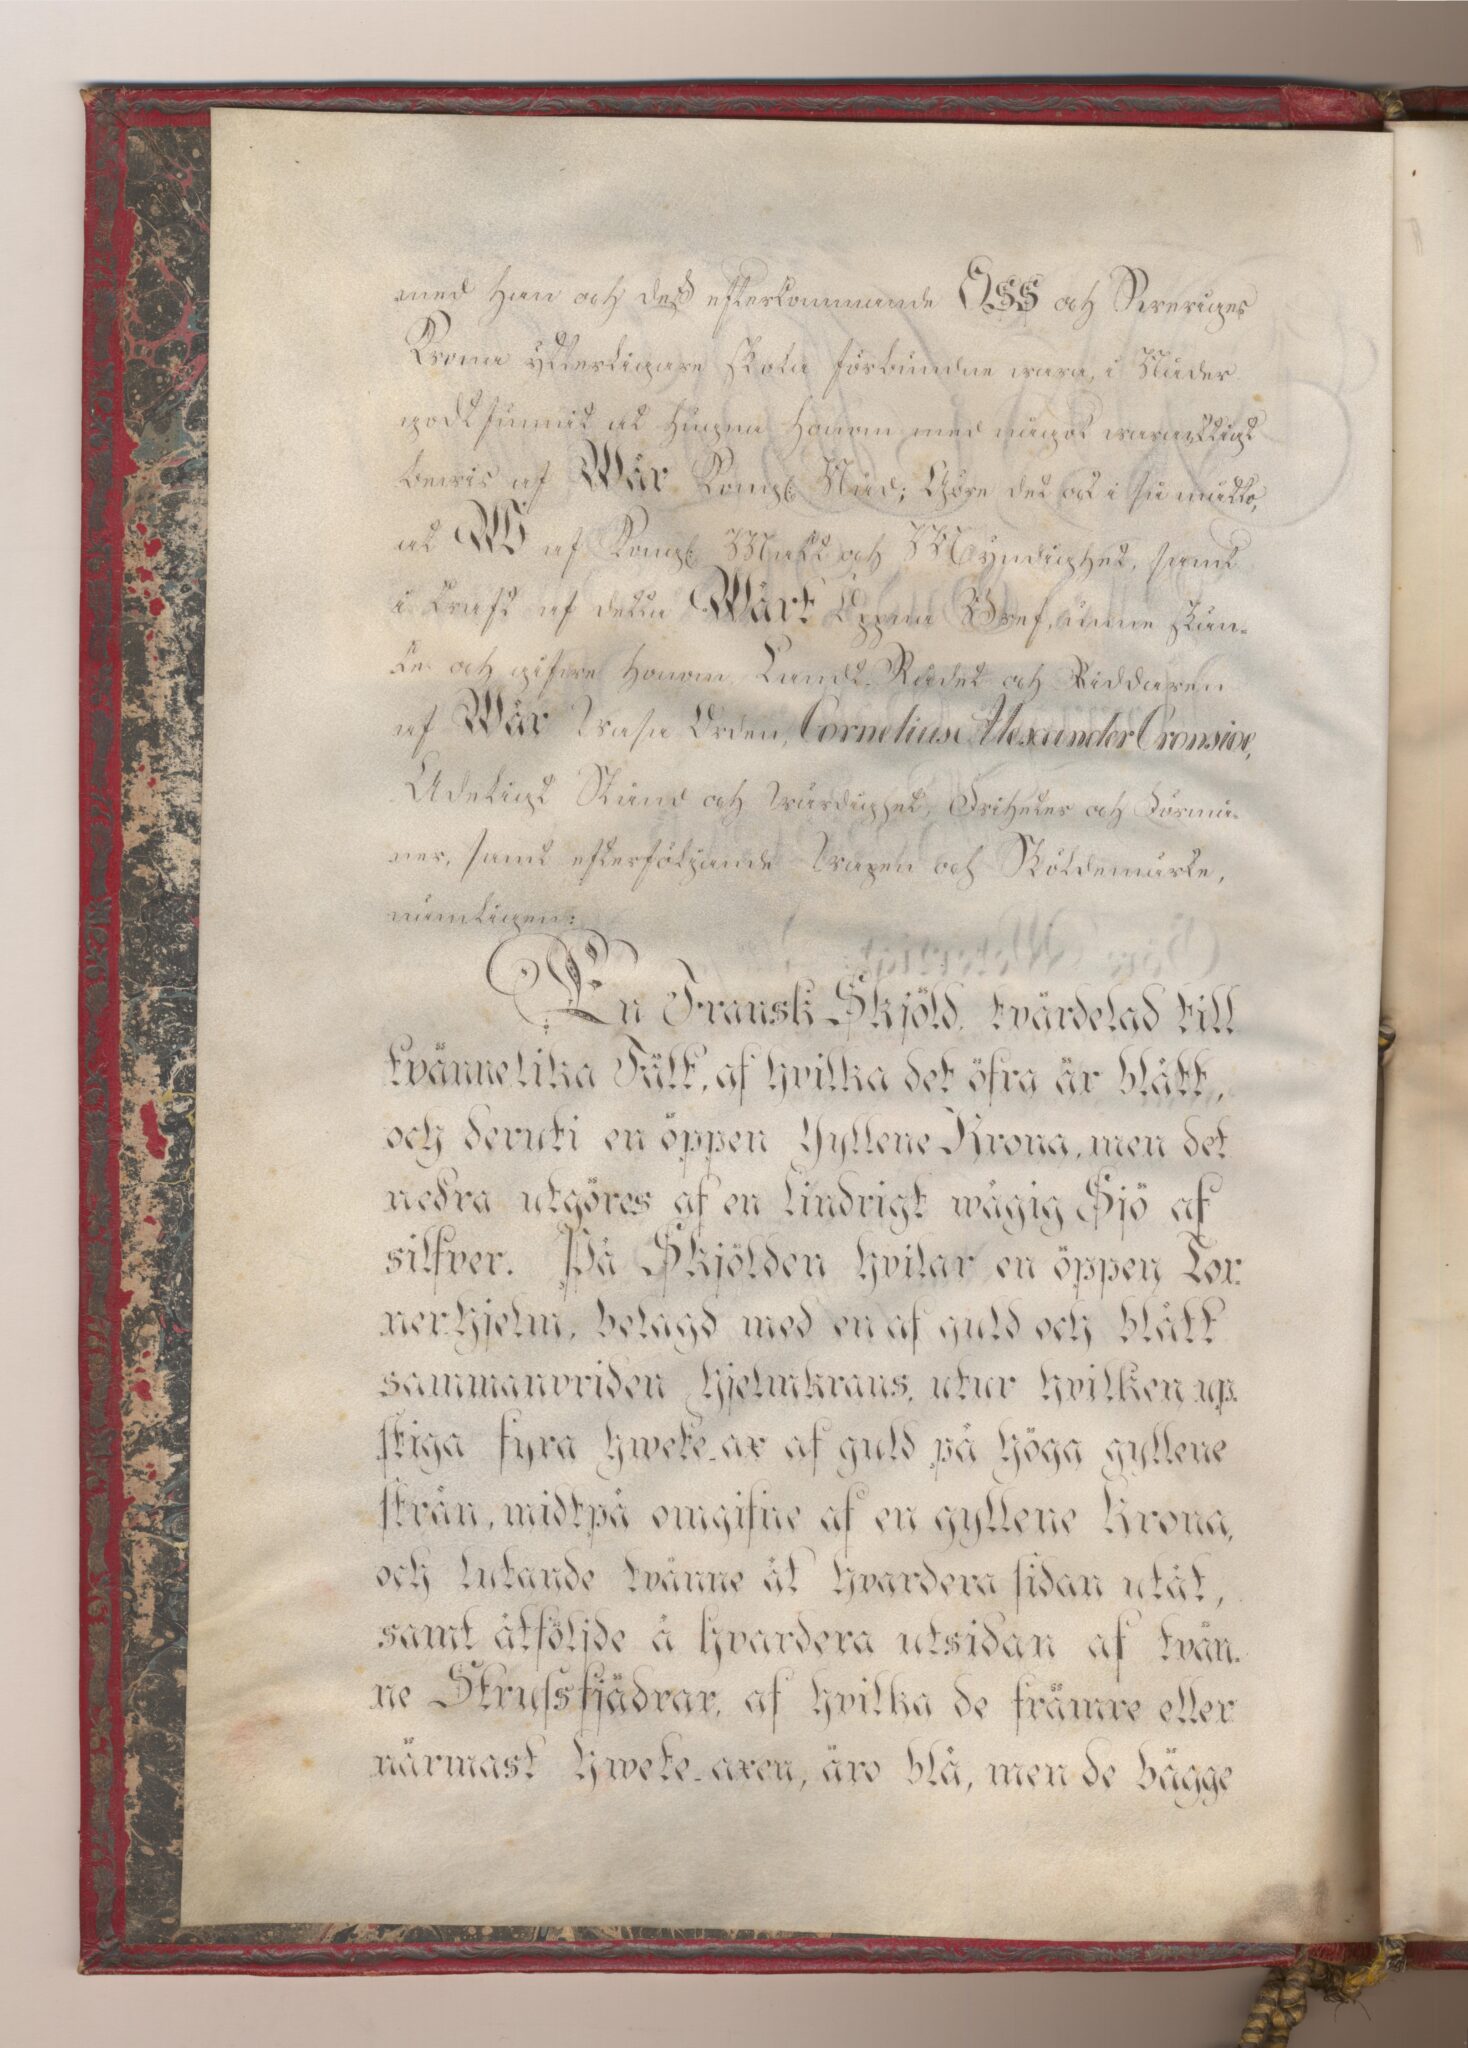 med Han och deß efterkommande OSS och Sweriges
Krona ytterligare skola förbundne wara, i Nåder
godt funnit at hugna Honom med något waracktigt
bewis af Wår Kongl. Nåd; Göre det ock i så måtto,
at WI af Kongl. Magt och Myndighet, samt
i kraft af detta Wårt Öppna Bref, unne skän-
ke och gifwe honom Landt-Rådet och Riddaren
af Wår Wasa Orden, Cornelius Alexander Cronsioe,
Adeligt Stånd och Wärdighet, Friheter och Förmå-
ner, samt efterföljande Wapen och Sköldemärke,
nämligen:
En Fransk Skjöld, tvärdelad till
tvänne lika Fält, af hvilka det öfra är blått,
och deruti en öppen Gyllene Krona, men det
nedra utgöres af en lindrigt wågig Sjö af
silfver. På Skjölden hvilar en öppen Tor-
nerhjelm, belagd med en af guld och blått
sammanvriden hjelmkrans, utur hvilken up-
stiga fyra hwete-ax af guld på höga gyllene
strån, midtpå omgifne af en gyllene Krona,
och lutande tvänne åt hvardera sidan utåt,
samt åtföljde å hvardera utsidan af tvän-
ne Strussfjädrar, af hvilka de främre eller
närmast hwete-axen, äro blå, men de bägge